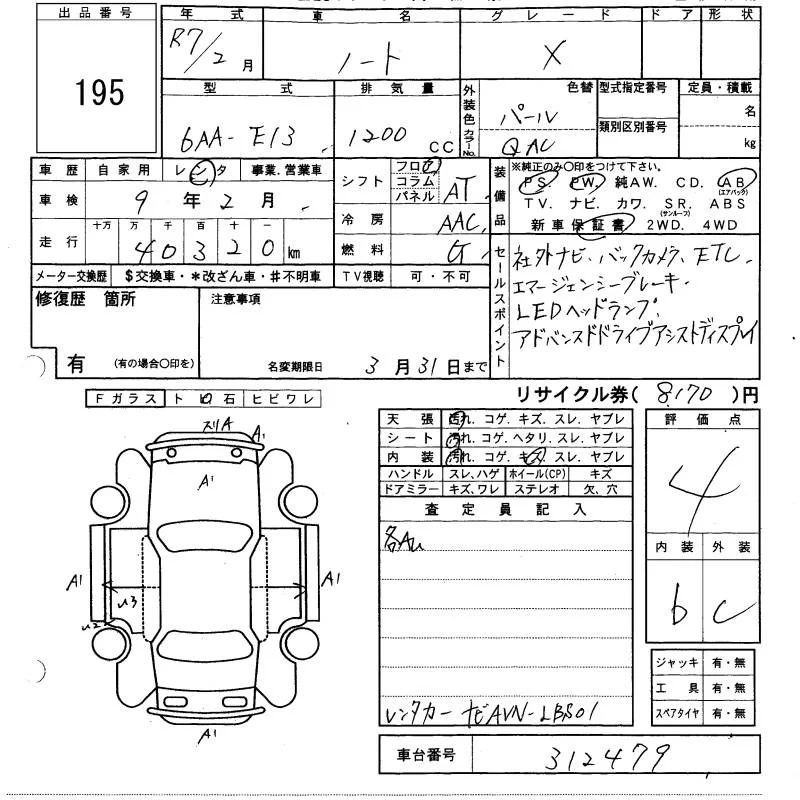 出品番号 年式 車名 グレード ドア 形状
195 R7/2月 ノート X
型式 排気量 外装色 カラーNo. 色替 型式指定番号 定員・積載
6AA-E13 1200CC パール QAC 類別区別番号 名 kg
車歴 自家用 レンタ 事業.営業車
車検 9年2月
走行 十万 万 千 百 十
40320km
メーター交換歴 $交換車・*改ざん車・#不明車
シフト フロア コラム パネル AT
冷房 AAC
燃料 G
TV視聴 可・不可
装備品 ※純正のみ〇印をつけて下さい。
PS. PW. 純AW. CD. AB (エアバック)
TV. ナビ. カワ. SR. (サンルーフ) ABS
新車保証書 2WD. 4WD
セールスポイント
社外ナビ、バックカメラ、ETC、
エマージェンシーブレーキ.
LEDヘッドランプ.
アドバンスドドライブアシストディスプレイ
修復歴 箇所
有 (有の場合〇印を)
注意事項
名変期限日 3月31日まで
リサイクル券(8170)円
Fガラス トビ石 ヒビワレ
スリA A1
A1
A1 A1
u3
u2
A1
天張 汚れ. コゲ. キズ. スレ. ヤブレ
シート 汚れ. コゲ. ヘタリ. スレ. ヤブレ
内装 汚れ. コゲ. キズ. スレ. ヤブレ
ハンドル スレ、ハゲ ホイール(CP) キズ
ドアミラー キズ、ワレ ステレオ 欠、穴
査定員記入
各Au
レンタカー ナビAVN-LBS01
評価点
4
内装 外装
b c
ジャッキ 有・無
工具 有・無
スペアタイヤ 有・無
車台番号 312479